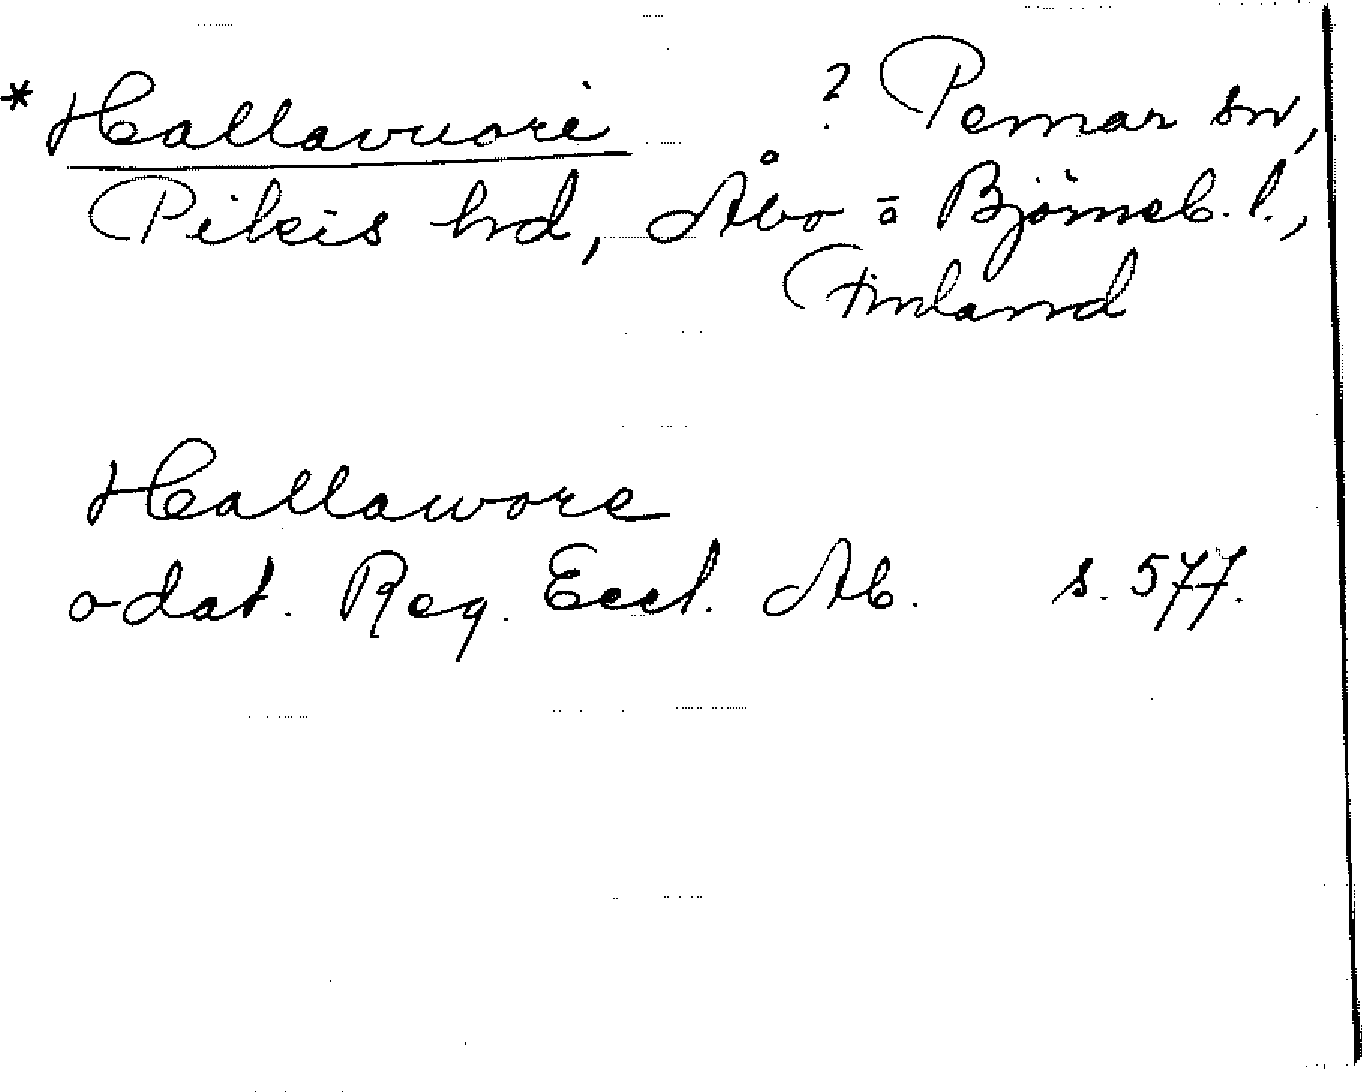 * Hallavuori ? Pemar sn,
Pikis hd, Åbo o Björneb. l.,
Finland
Hallawore
odat. Reg. Eccl. Ab. s. 577.